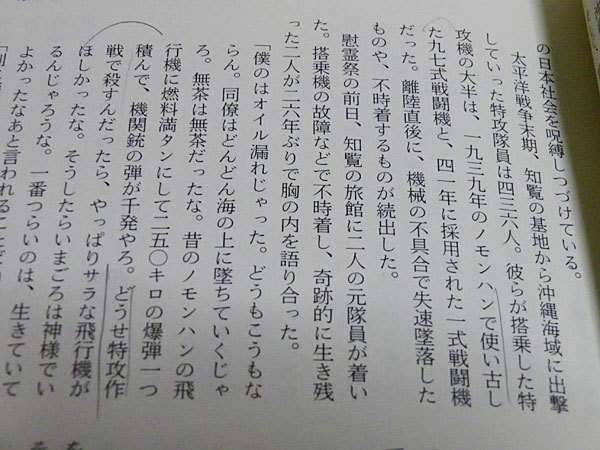 の日本社会を呪縛しつづけている。
太平洋戦争末期、知覧の基地から沖縄海域に出撃
していった特攻隊員は四三六人。彼らが搭乗した特
攻機の大半は、一九三九年のノモンハンで使い古し
た九七式戦闘機と、四一年に採用された一式戦闘機
だった。離陸直後に、機械の不具合で失速墜落した
ものや、不時着するものが続出した。
慰霊祭の前日、知覧の旅館に二人の元隊員が着い
た。搭乗機の故障などで不時着し、奇跡的に生き残
った二人が二六年ぶりで胸の内を語り合った。
「僕のはオイル漏れじゃった。どうもこうもな
らん。同僚はどんどん海の上に墜ちていくじゃ
ろ。無茶は無茶だったな。昔のノモンハンの飛
行機に燃料満タンにして二五〇キロの爆弾一つ
積んで、機関銃の弾が千発やろ。どうせ特攻作
戦で殺すんだったら、やっぱりサラな飛行機が
ほしかったな。そうしたらいまごろは神様でい
るんじゃろうな。一番つらいのは、生きていて
よかったなあと言われることだ